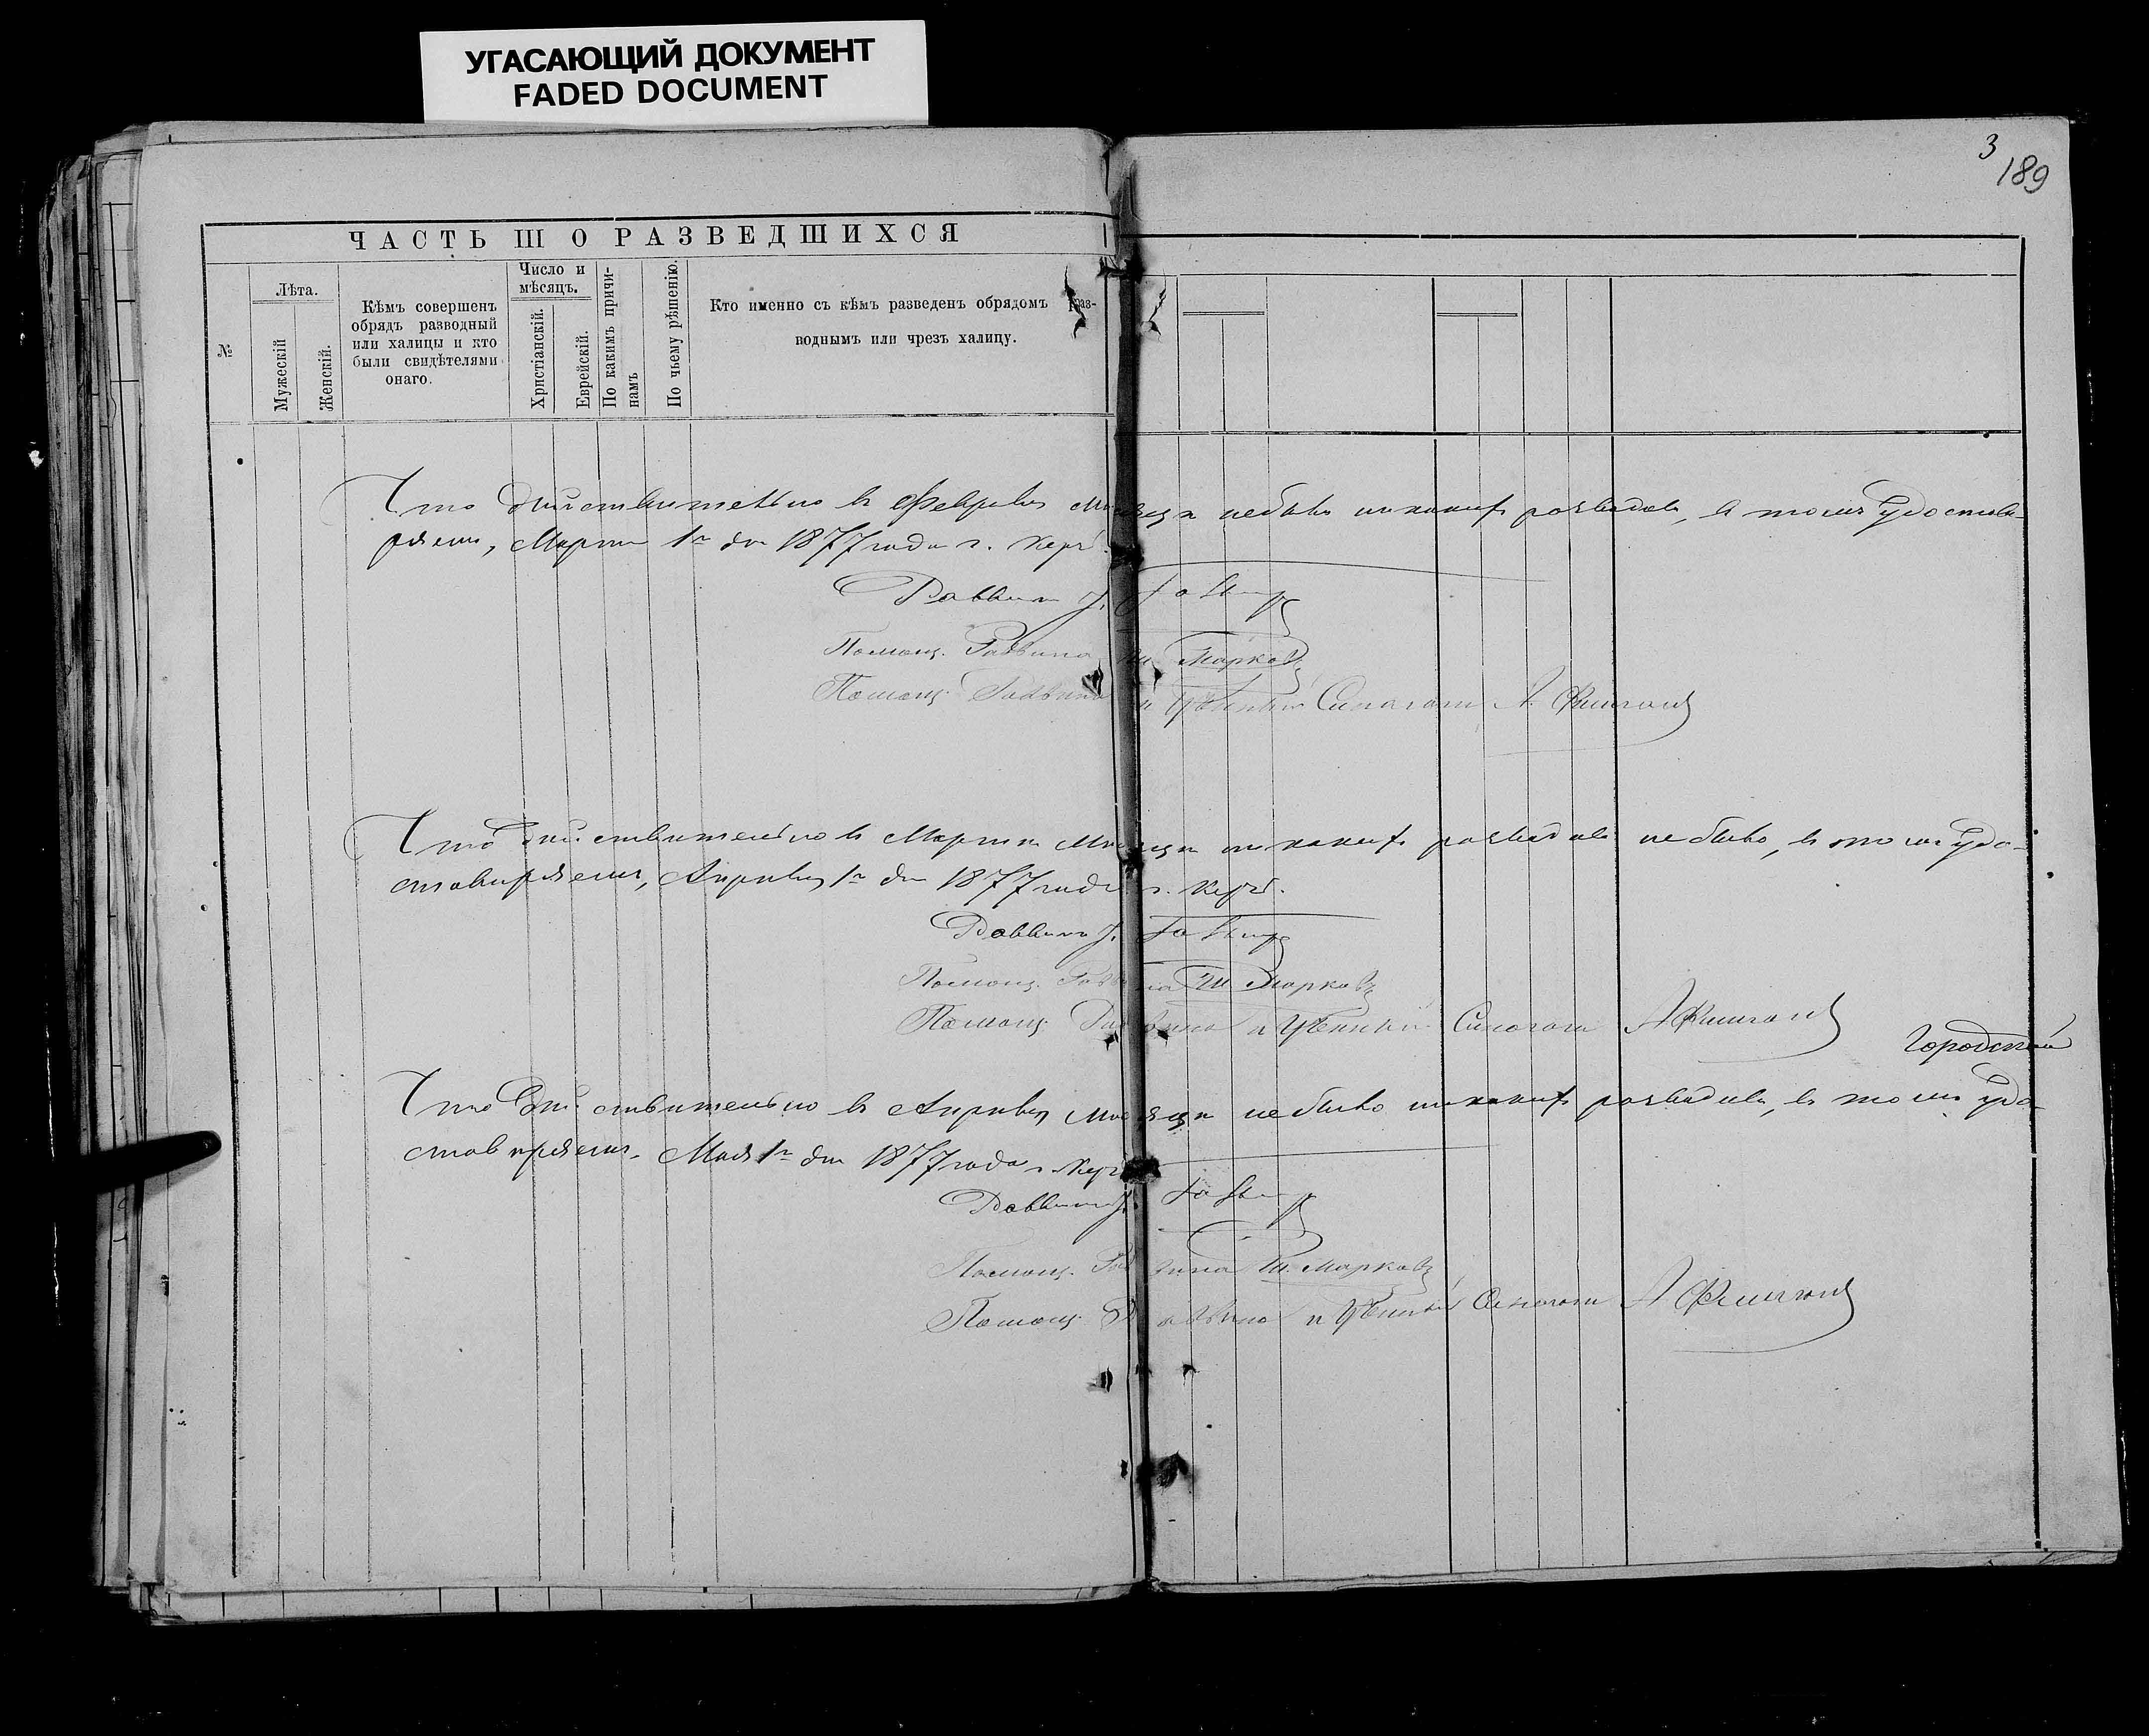 УГАСАЮЩИЙ ДОКУМЕНТ
FADED DOCUMENT
3
189
ЧАСТЬ III О РАЗВЕДШИХСЯ
№
Лѣта.
Мужескій
Женскій.
Кѣмъ совершенъ
обрядъ разводный
или халицы и кто
были свидѣтелями
онаго.
Число и
мѣсяцъ.
Христіанскій.
Еврейскій.
По какимъ причи-
намъ
По чьему рѣшенію.
Кто именно съ кѣмъ разведенъ обрядомъ Раз-
воднымъ или чрезъ халицу.
Что дѣйствительно въ Февралѣ мѣсяцѣ небыло никакихъ разводовъ, въ томъ удостовѣ-
ряемъ, Марта 1го дня 1877 года г. Керчь.
Раввинъ
Помощ. Раввина Ш. Марковъ
Помощ. Раввина и Ученый Синагоги
Что дѣйствительно въ Мартѣ мѣсяцѣ никакихъ разводовъ небыло, въ томъ удо-
стовѣряемъ, Апрѣля 1го дня 1877 года г. Керчь.
Раввинъ
Помощ. Раввина Ш. Марковъ
Помощ. Раввина и Ученый Синагоги
Городской
Что дѣйствительно въ Апрѣлѣ мѣсяцѣ небыло никакихъ разводовъ, въ томъ удо-
стовѣряемъ. Мая 1го дня 1877 года г. Керчь
Раввинъ
Помощ. Раввина Ш. Марковъ
Помощ. Раввина и Ученый Синагоги